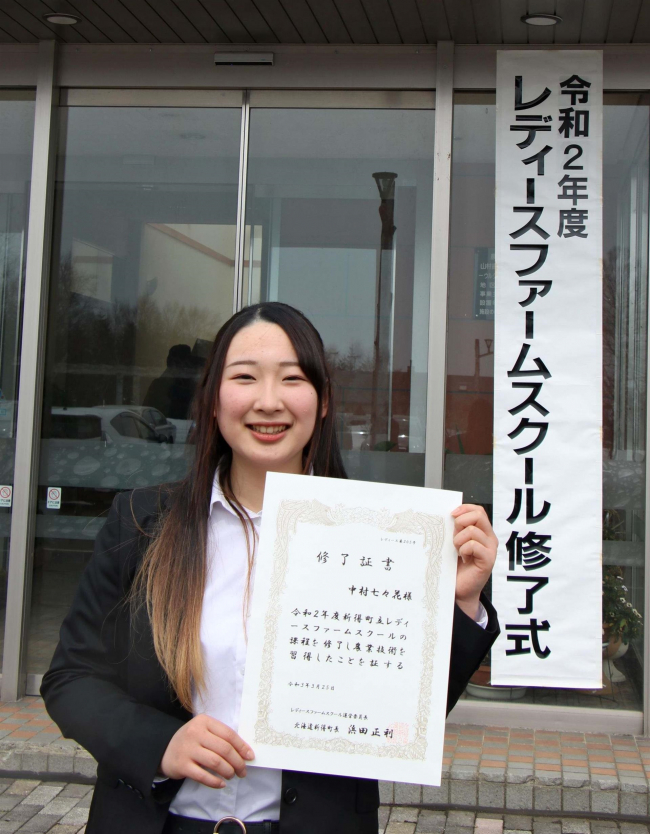 令和2年度
レディースファームスクール修了式
修了証書
中村七々花様
令和2年度新得町立レディ
ースファームスクールの
課程を修了し農業技術を
習得したことを証する
令和3年3月23日
レディースファームスクール運営委員長
北海道新得町長 浜田正利